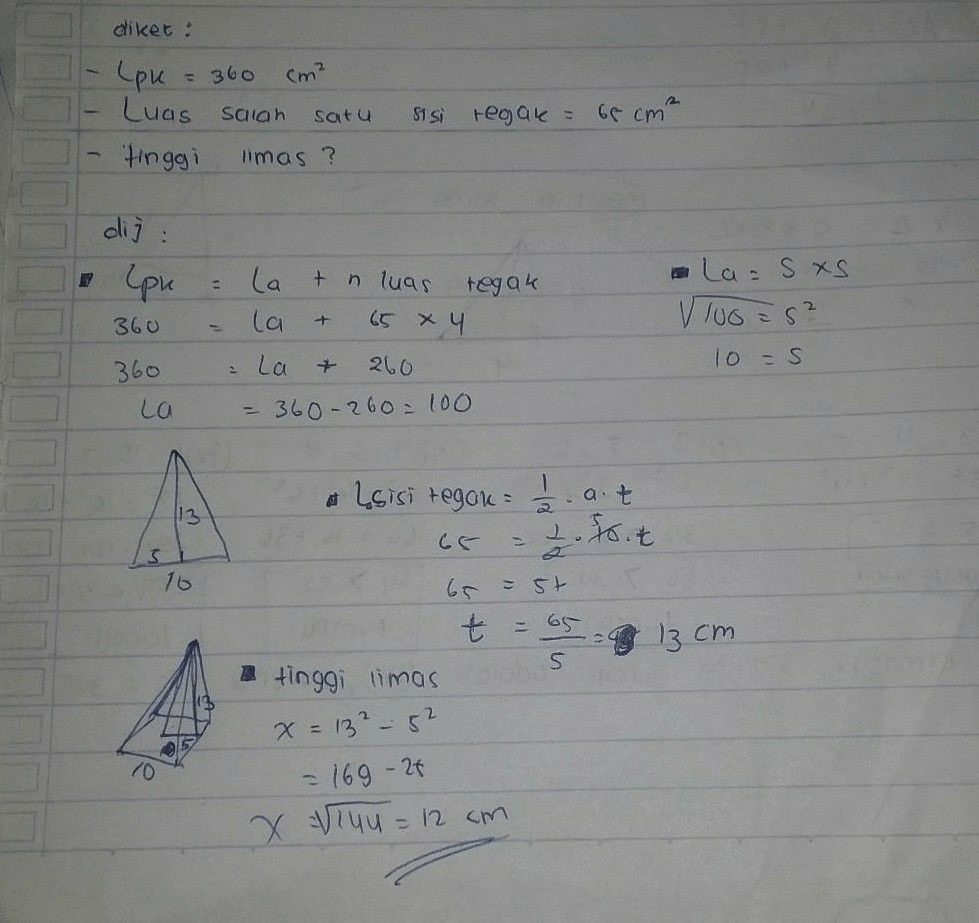 diket :
- Lpk = 360 cm²
- Luas salah satu sisi tegak = 65 cm²
- tinggi limas ?
dij :
▪ Lpk = La + n luas tegak
360 = La + 65 × 4
360 = La + 260
La = 360 - 260 = 100
▪ La = S × S
√100 = S²
10 = S
13
5
10
▪ L.sisi tegak = 1/2 . a . t
65 = 1/2 . 10 5 . t
65 = 5t
t = 65/5 = 13 cm
13
5
10
▪ tinggi limas
x = 13² - 5²
= 169 - 25
x = √144 = 12 cm